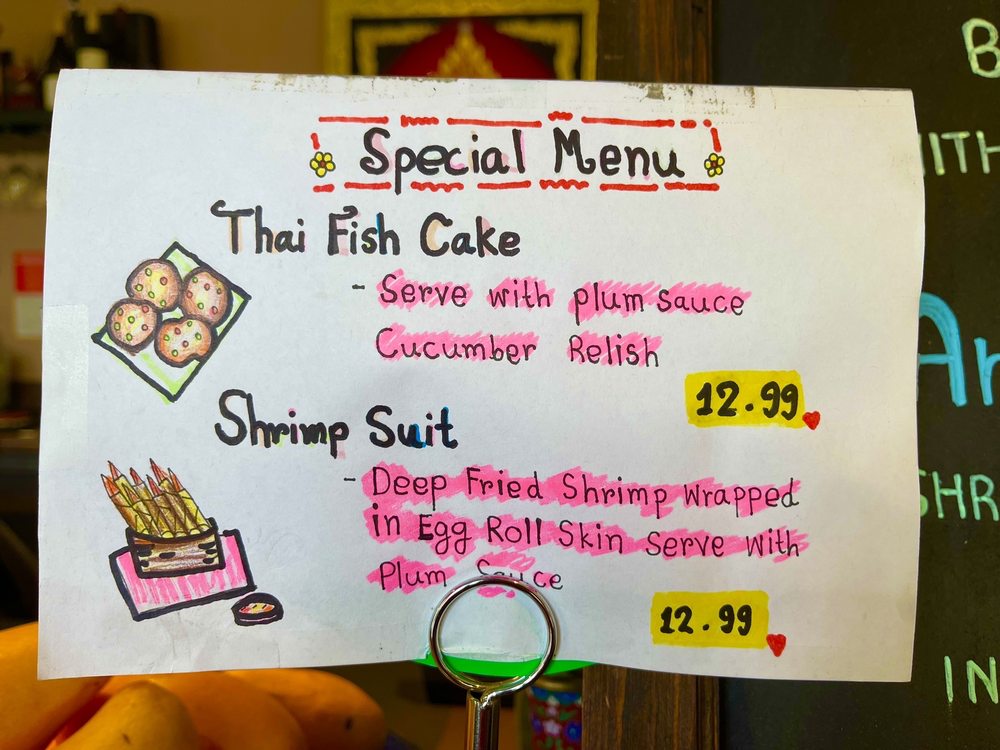 Special Menu
Thai Fish Cake
- Serve with plum sauce
Cucumber Relish
12.99
Shrimp Suit
- Deep Fried Shrimp Wrapped
in Egg Roll Skin Serve with
Plum Sauce
12.99
B
ITH
Ar
SHR
IN